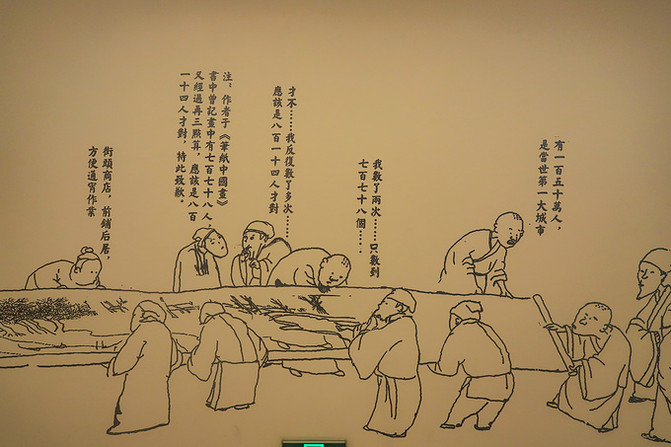 有一百五十萬人,
是當世第一大城市
我數了兩次……只數到
七百七十八個……
才不……我反復數了多次……
應該是八百一十四人才對
注:作者于《筆紙中國畫》
書中曾記畫中有七百七十八人,
又經過再三點算,應該是八百
一十四人才對,特此致歉。
街頭商店,前鋪后居,
方便通宵作業